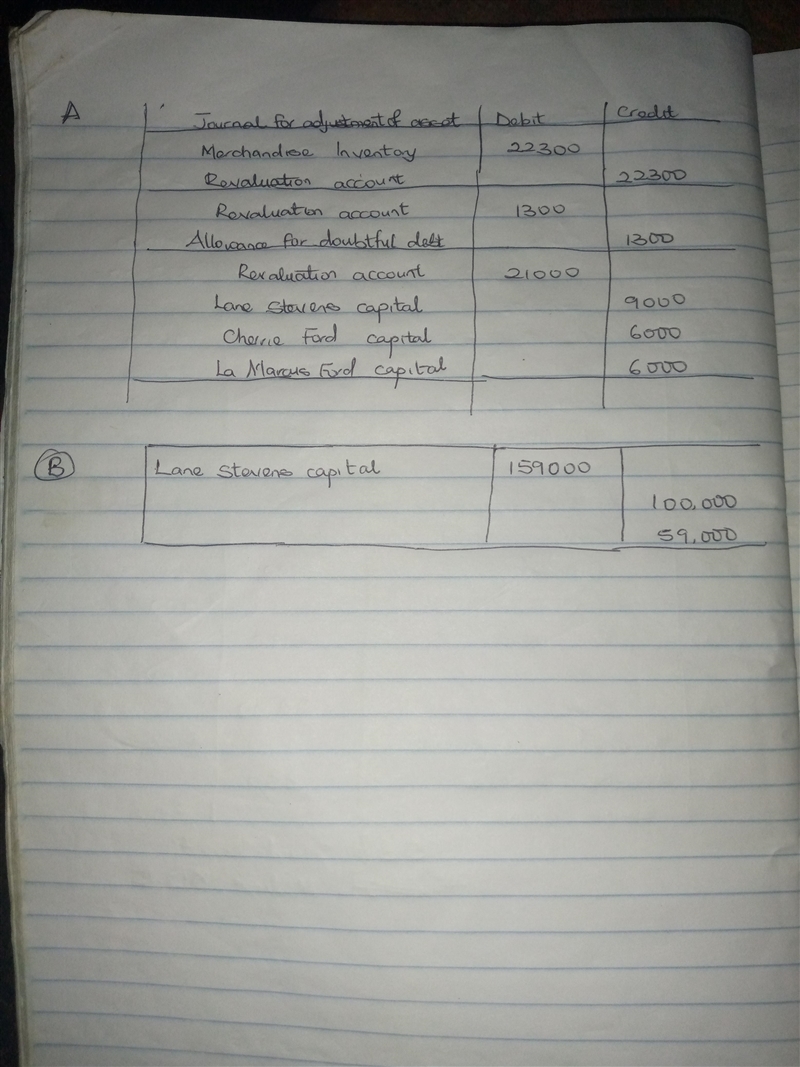 A Journal for adjustment of asset Debit Credit
Merchandise Inventory 22300
Revaluation account 22300
Revaluation account 1300
Allowance for doubtful debt 1300
Revaluation account 21000
Lane Stevens capital 9000
Cherrie Ford capital 6000
La Marcus Ford capital 6000
B Lane Stevens capital 159000
100,000
59,000